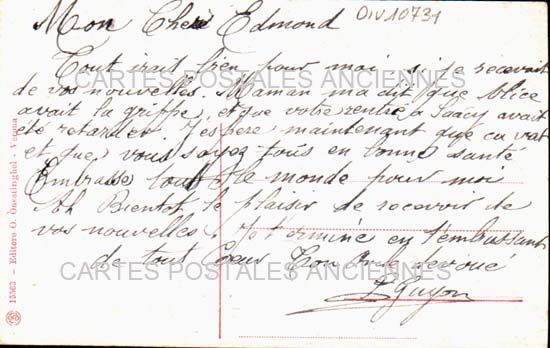 Mon Cher Edmond
DIV10731
Tout irait bien pour moi si je recevait
de vos nouvelles. Maman ma dit que Alice
avait la grippe, et que votre rentré a Saacy avait
été retarder. J'espere maintenant que ca vat
et que vous soyez tous en bonne santé
Embrasse tout le monde pour moi
Ah Bientot le plaisir de recevoir de
vos nouvelles. Je termine en t'embrassant
de tout Coeur Ton devoué
L Guyon
CARTES POSTALES ANCIENNES
CARTES POSTALES ANCIENNES
15563 – Editore O. Onestinghel - Verona